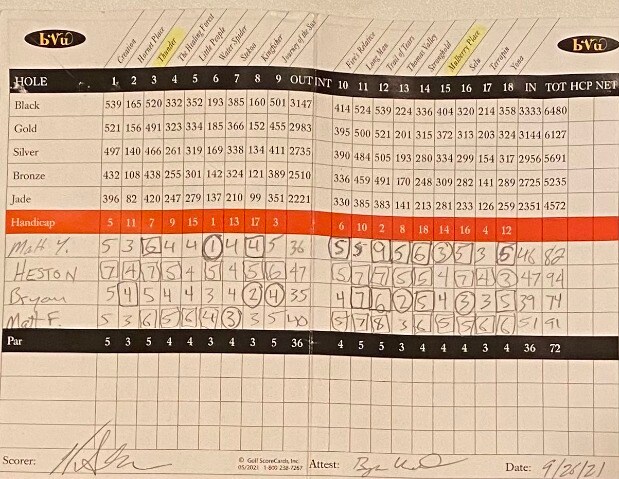 bVu
Creation Hornet Place Thunder The Healing Forest Little People Water Strider Sixkiller Kingfisher Journey of the Sun Fire's Relative Long Man Trail of Tears Thomas Valley Stronghold Mulberry Place Selu Terrapin Yona
bVu
HOLE 1 2 3 4 5 6 7 8 9 OUT INT 10 11 12 13 14 15 16 17 18 IN TOT HCP NET
Black 539 165 520 332 352 193 385 160 501 3147 414 524 539 224 336 404 320 214 358 3333 6480
Gold 521 156 491 323 334 185 366 152 455 2983 395 500 521 201 315 372 313 203 324 3144 6127
Silver 497 140 466 261 319 169 338 134 411 2735 390 484 505 193 280 334 299 154 317 2956 5691
Bronze 432 108 438 255 301 142 324 121 389 2510 336 459 491 170 248 309 282 141 289 2725 5235
Jade 396 82 420 247 279 137 210 99 351 2221 330 385 383 141 213 281 233 126 259 2351 4572
Handicap 5 11 7 9 15 1 13 17 3 6 10 2 8 18 14 16 4 12
Matt Y. 5 3 6 4 4 1 4 4 5 36 5 5 9 5 6 3 5 3 5 46 82
HESTON 7 4 7 5 4 5 4 5 6 47 5 7 7 5 5 4 7 4 3 47 94
Bryan 5 4 5 4 4 3 4 2 4 35 4 7 6 2 5 4 3 3 5 39 74
Matt F. 5 3 6 5 6 4 3 3 5 40 5 7 8 3 6 5 5 6 6 51 91
Par 5 3 5 4 4 3 4 3 5 36 4 5 5 3 4 4 4 3 4 36 72
Scorer: © Golf ScoreCards, Inc. Attest: Date: 9/26/21
05/2021 1-800-238-7267